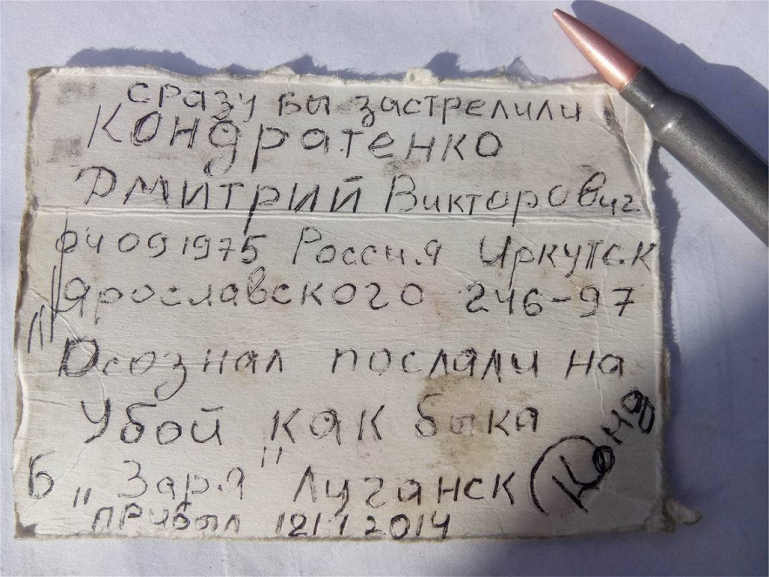 сразу бы застрелили
Кондратенко
Дмитрий Викторович
04091975 Россия Иркутск
Ярославского 246-97
"Осознал послали на
Убой как быка"
Б "Заря" Луганск Конд
прибыл 2014